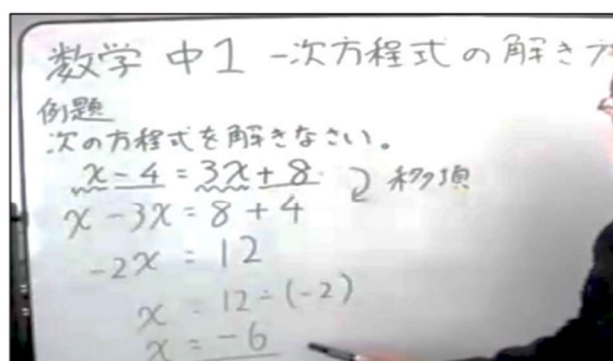 数学 中1 一次方程式の解き方
例題
次の方程式を解きなさい。
x-4=3x+8 移項
x-3x=8+4
-2x=12
x=12÷(-2)
x=-6